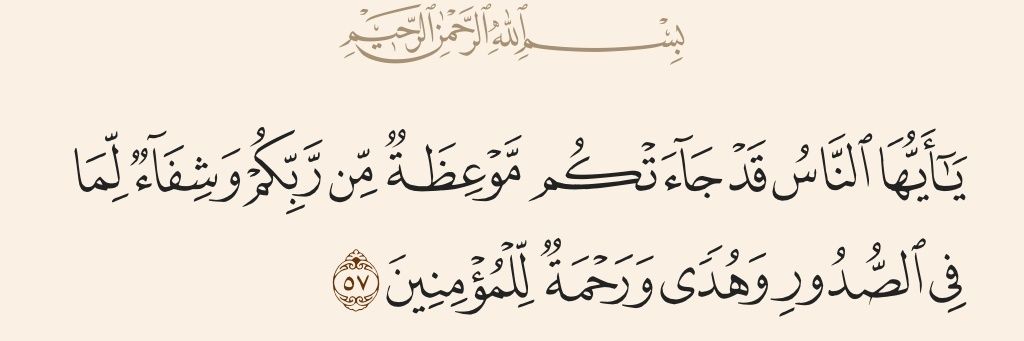 بِسْمِ ٱللَّهِ ٱلرَّحْمَٰنِ ٱلرَّحِيمِ
يَٰٓأَيُّهَا ٱلنَّاسُ قَدْ جَآءَتْكُم مَّوْعِظَةٌ مِّن رَّبِّكُمْ وَشِفَآءٌ لِّمَا
فِى ٱلصُّدُورِ وَهُدًى وَرَحْمَةٌ لِّلْمُؤْمِنِينَ ٥٧